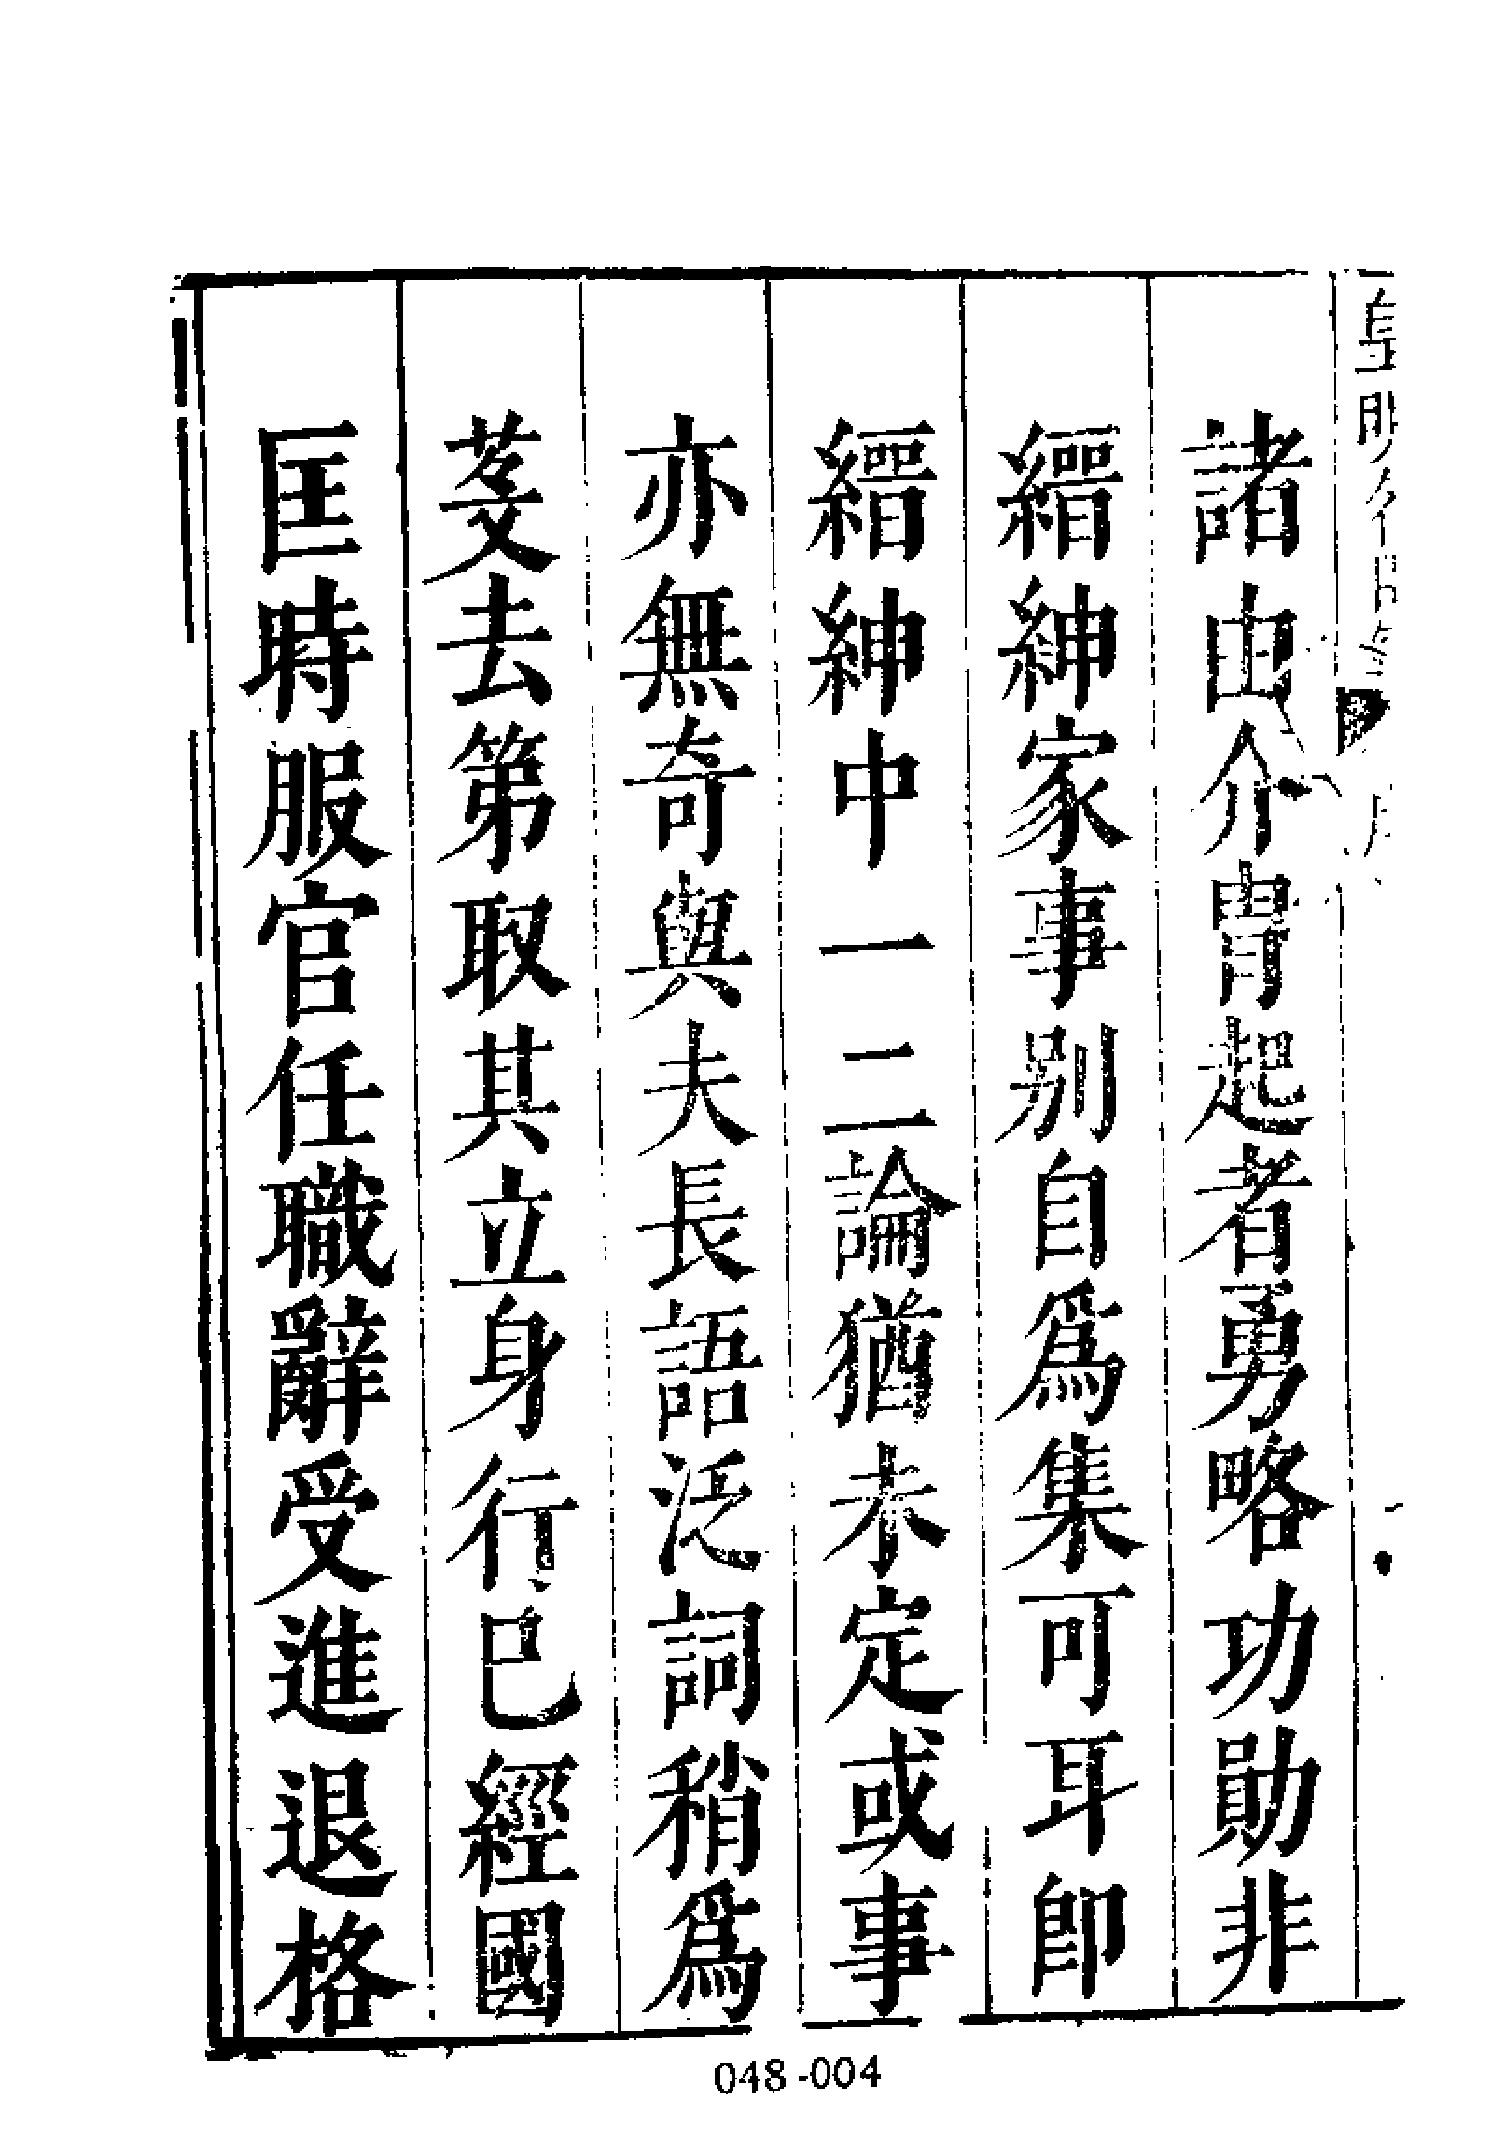 諸由介胄起者勇略功勛非
縉紳家事别自爲集可耳卽
縉紳中一二論猶未定或事
亦無奇與夫長語泛詞稍爲
芟去第取其立身行已經國
匡時服官任職辭受進退格
048-004